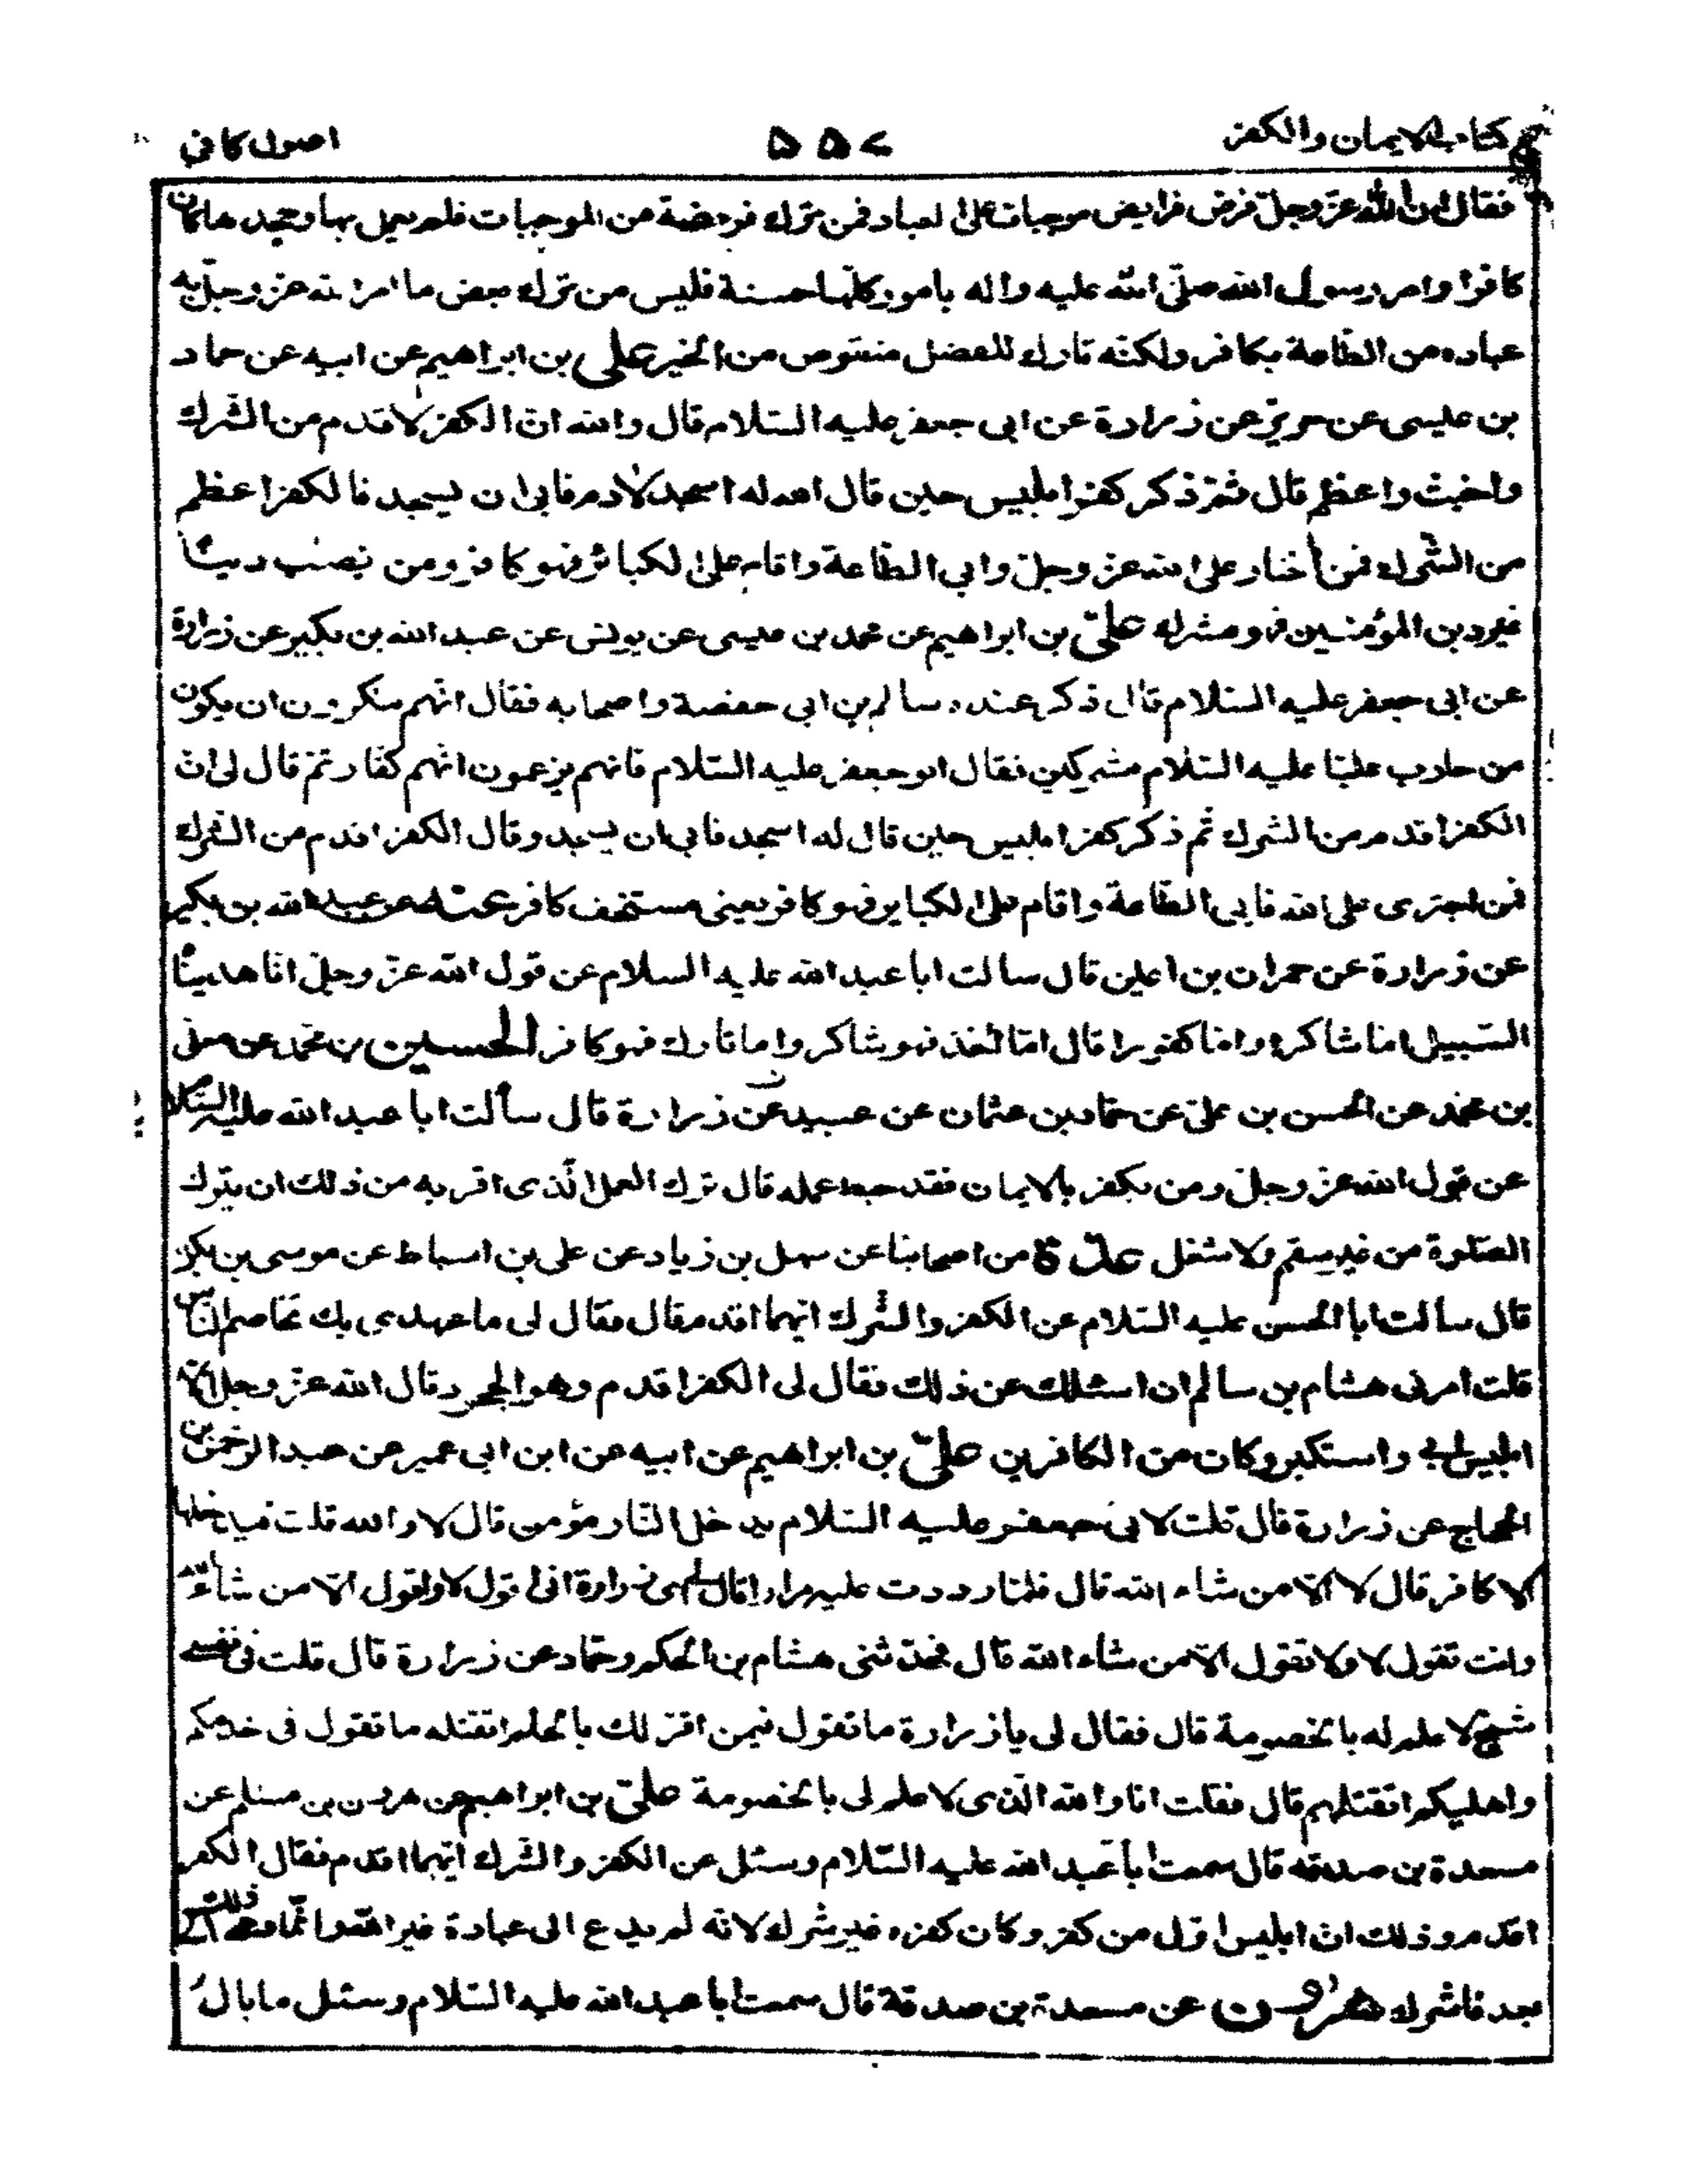 كتاب الايمان والكفر
٥٥٧
اصول كافي
فقال ان الله عزوجل فرض فرايض موجبات على العباد فمن ترك فريضة من الموجبات فلم يعمل بها وجحدها كان
كافرا وامر رسول الله صلى الله عليه واله بامور كلها حسنة فليس من ترك بعض ما امر الله عزوجل به
عباده من الطاعة بكافر ولكنه تارك للفضل منقوص من الخير علي بن ابراهيم عن ابيه عن حماد
بن عليسى عن حريز عن زرارة عن ابى جعفر عليه السلام قال والله ان الكفر لاقدم من الشرك
واخبث واعظم قال ثم ذكر كفر ابليس حين قال الله له اسجد لادم فابى ان يسجد فالكفر اعظم
من الشرك فمن اختار على الله عزوجل وابى الطاعة واقام على الكبائر فهو كافر ومن نصب دينًا
غير دين المؤمنين فهو مشرك علىّ بن ابراهيم عن محمد بن عيسى عن يونس عن عبد الله بن بكير عن زرارة
عن ابى جعفر عليه السلام قال ذكر عنده سالم بن ابى حفصة واصحابه فقال انهم ينكرون ان يكون
من حارب عليًا عليه السلام مشركين فقال ابو جعفر عليه السلام فانهم يزعمون انهم كفار ثم قال لى ان
الكفر اقدم من الشرك ثم ذكر كفر ابليس حين قال له اسجد فابى ان يسجد وقال الكفر اقدم من الشرك
فمن اجترى على الله فابى الطاعة واقام على الكباير فهو كافر يعنى مستخف كافر عنه عن عبد الله بن بكير
عن زرارة عن حمران بن اعين قال سالت ابا عبد الله عليه السلام عن قول الله عزّ وجلّ انا هديناه
السبيل اما شاكرا واما كفورا قال امّا اخذ فهو شاكر واما تارك فهو كافر الحسين بن محمد عن معلى
بن محمد عن الحسن بن على عن حماد بن عثمان عن عبيد عن زرارة قال سألت ابا عبد الله عليه السلام
عن قول الله عز وجل ومن يكفر بالايمان فقد حبط عمله قال ترك العمل الّذى اقر به من ذلك ان يترك
الصلوة من غير سقم ولا شغل عدّة من اصحابنا عن سهل بن زياد عن على بن اسباط عن موسى بن بكر
قال سالت ابا الحسن عليه السلام عن الكفر والشرك ايهما اقدم قال فقال لى ما عهدى بك تخاصم الناس
قلت امرنى هشام بن سالم ان اسئلك عن ذلك فقال لى الكفر اقدم وهو الجحود قال الله عزّ وجل الّا
ابليس ابى واستكبر وكان من الكافرين علىّ بن ابراهيم عن ابيه عن ابن ابى عمير عن عبد الرحمن بن
الحجاج عن زرارة قال قلت لابى جعفر عليه السلام يدخل النار مؤمن قال لا والله قلت فيدخلها
الا كافر قال لا الّا من شاء الله قال فلما رددت عليه مرارا قال لى اى زرارة انى اقول لا واقول الّا من شاء الله
وانت تقول لا ولا تقول الّا من شاء الله قال فحدثنى هشام بن الحكم وحماد عن زرارة قال قلت فى نفسى
شيخ لا علم له بالخصومة قال فقال لى يا زرارة ما تقول فيمن اقر لك بالحكم اتقتله ما تقول فى خدمكم
واهليكم اتقتلهم قال فقلت انا والله الّذى لا علم لى بالخصومة علىّ بن ابراهيم عن هرون بن مسلم عن
مسعدة بن صدقة قال سمعت ابا عبد الله عليه السلام وسئل عن الكفر والشرك ايّهما اقدم فقال الكفر
اقدم وذلك ان ابليس اوّل من كفر وكان كفره غير شرك لانه لم يدع الى عبادة غير الله وانّما دعى الى ذلك
بعد فاشرك هرون عن مسعدة بن صدقة قال سمعت ابا عبد الله عليه السلام وسئل ما بال